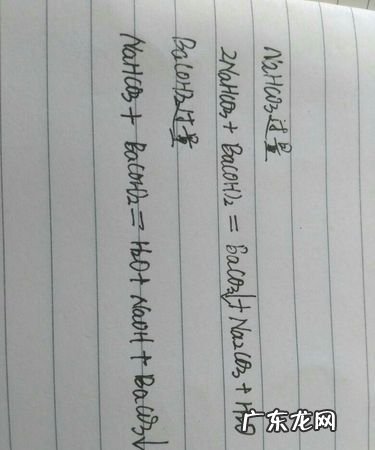 NaHCO3过量
2NaHCO3 + Ba(OH)2 = BaCO3↓ + Na2CO3 + H2O
Ba(OH)2过量
NaHCO3 + Ba(OH)2 = H2O + NaOH + BaCO3↓
广东龙网